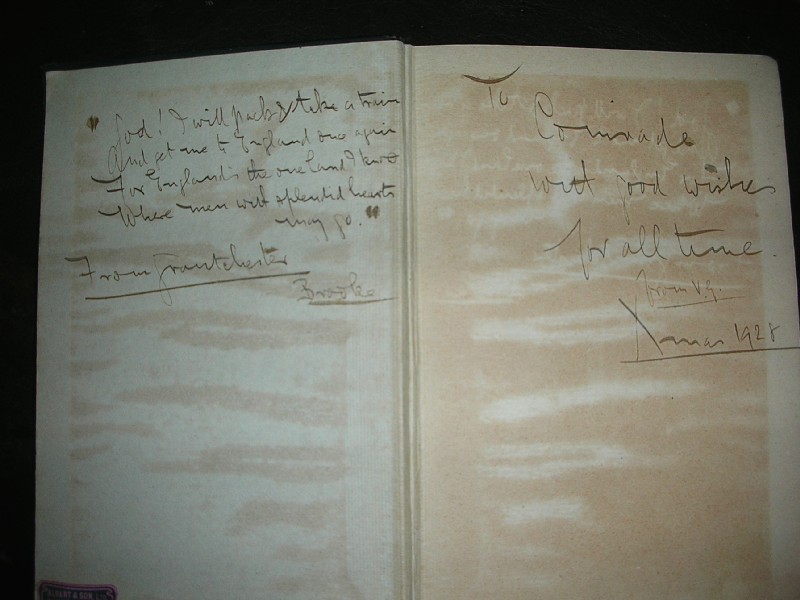 "God! I will pack & take a train
And get me to England once again
For England's the one land I know
Where men with splendid hearts
may go."
From Grantchester
Brooke
To
Comrade
with good wishes
for all time.
from V.G.
Xmas 1928
& SON, L